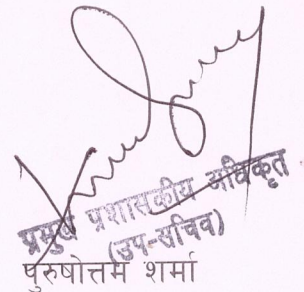 प्रमुख प्रशासकीय अधिकृत
(उप-सचिव)
पुरुषोत्तम शर्मा